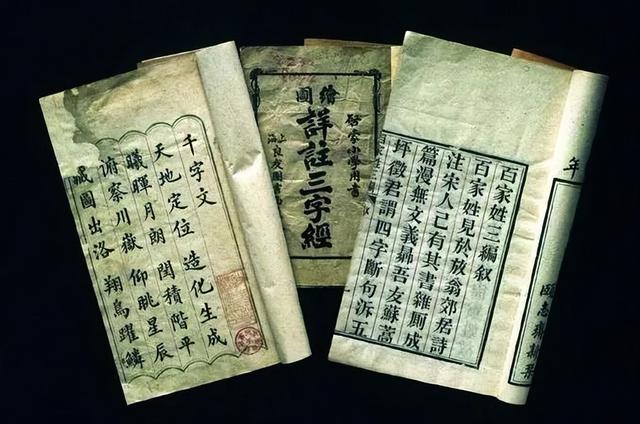 千字文
天地定位 造化生成
曦暉月朗 閏積階平
俯察川嶽 仰眺星辰
藏圖出洛 翔鳥躍鱗
繪圖
啓蒙小學用書
詳註三字經
上海良友圖書
百家姓三編叙
百家姓見於放翁郊居詩
注宋人己有其書雜厠成
篇漫無文義曏吾友蘇嵩
坪徵君謂四字斷句泝五
年